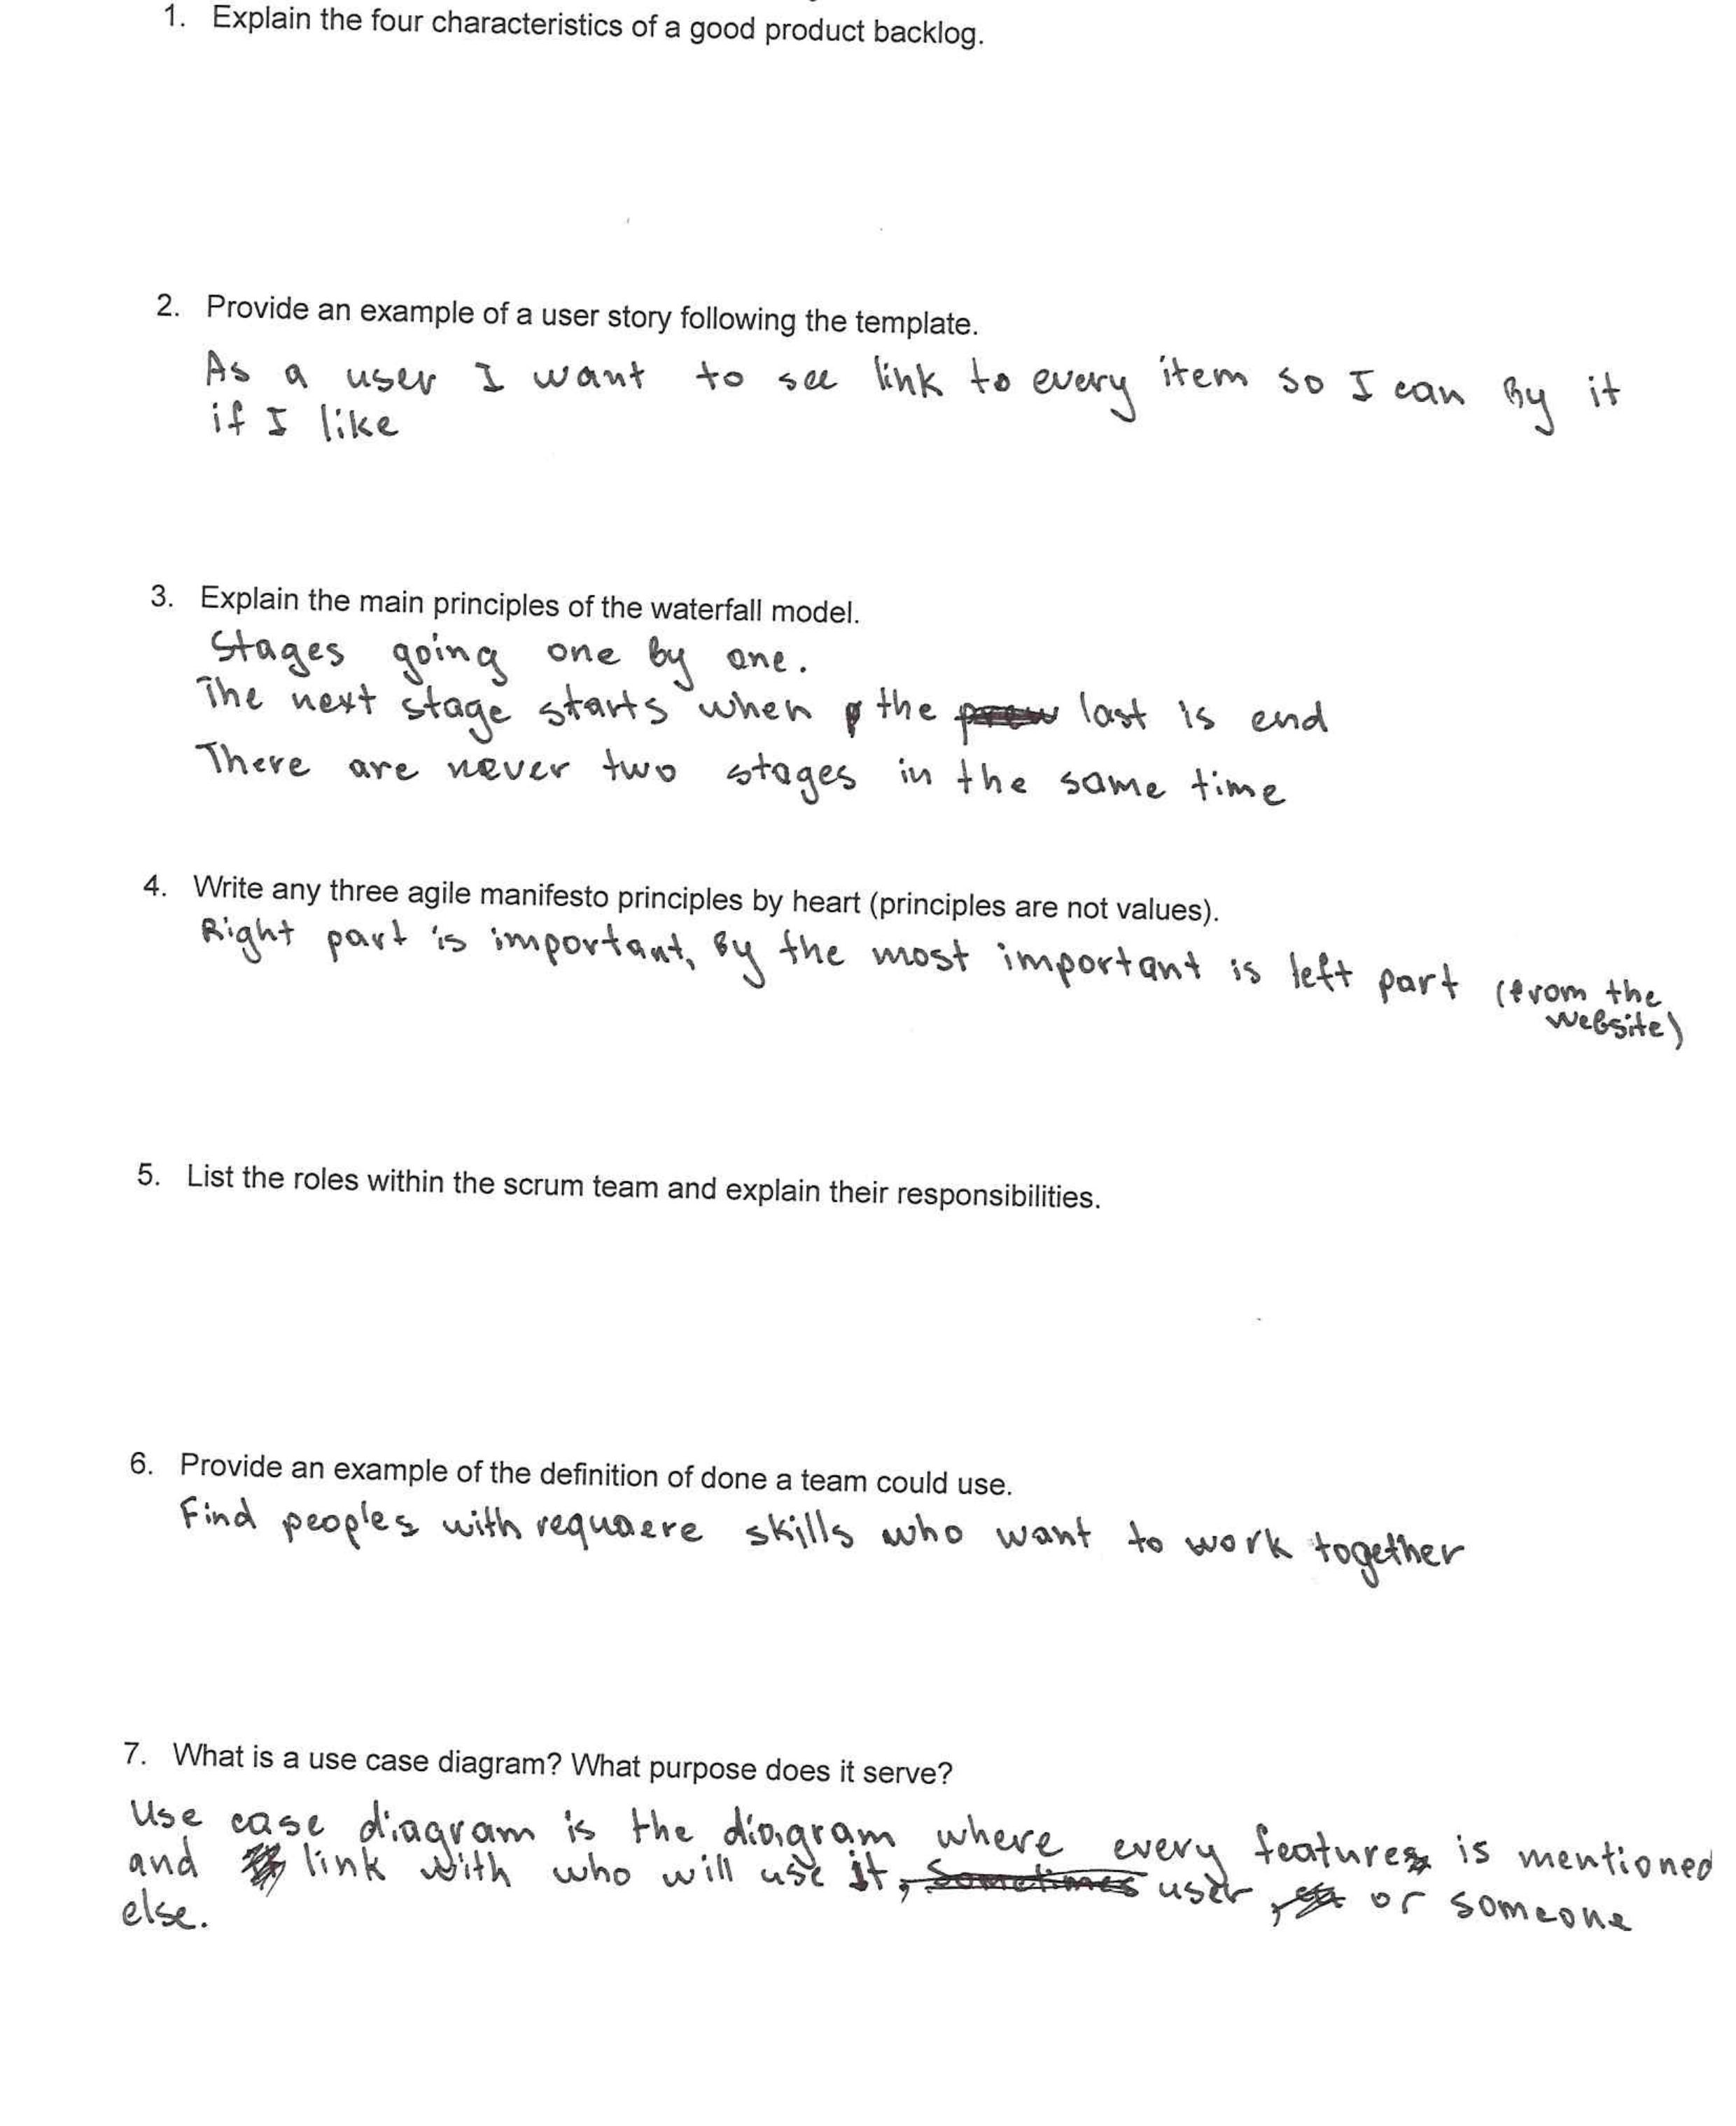 1. Explain the four characteristics of a good product backlog.
2. Provide an example of a user story following the template.
As a user I want to see link to every item so I can By it
if I like
3. Explain the main principles of the waterfall model.
Stages going one by one.
The next stage starts when the last is end
There are never two stages in the same time
4. Write any three agile manifesto principles by heart (principles are not values).
Right part is important, By the most important is left part (from the
website)
5. List the roles within the scrum team and explain their responsibilities.
6. Provide an example of the definition of done a team could use.
Find peoples with requaere skills who want to work together
7. What is a use case diagram? What purpose does it serve?
Use case diagram is the diagram where every feature is mentioned
and link with who will use it, user or someone
else.